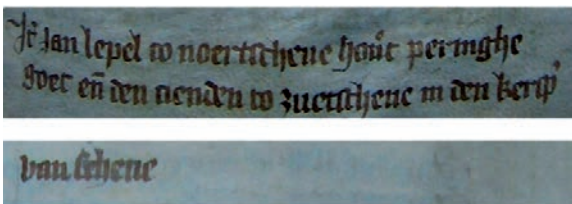 It Jan lepel to noertschene hout peringhe
goet en den tienden to zuetschene in den kersp
van schene